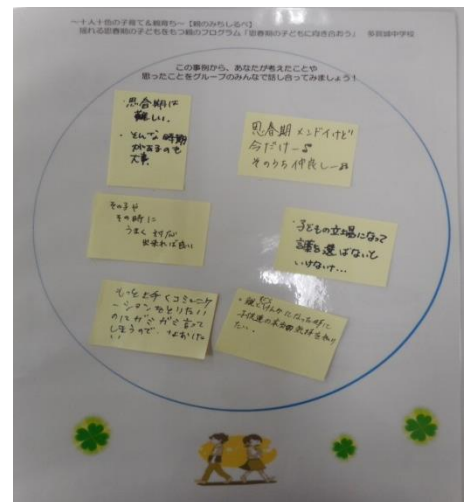 ～十人十色の子育て＆親育ち～【親のみちしるべ】
揺れる思春期の子どもをもつ親のプログラム「思春期の子どもに向き合おう」 中学校
この事例から、あなたが考えたことや
思ったことをグループのみんなで話し合ってみましょう！
・思春期は
難しい。
・どんな時期
があるのも
大事
思春期メンドイけど
今だけー
そのうち仲良しー
その子や
その時に
うまく が
出来れば良い
・子どもの立場になって
言葉を選ばないと
いけないけ…
もっと上手くコミュニケ
ーションをとりたい
のにガミガミ言って
しまうので、なおした
い
・親とけんかになった時に
子供達の 気持を知り
たい。